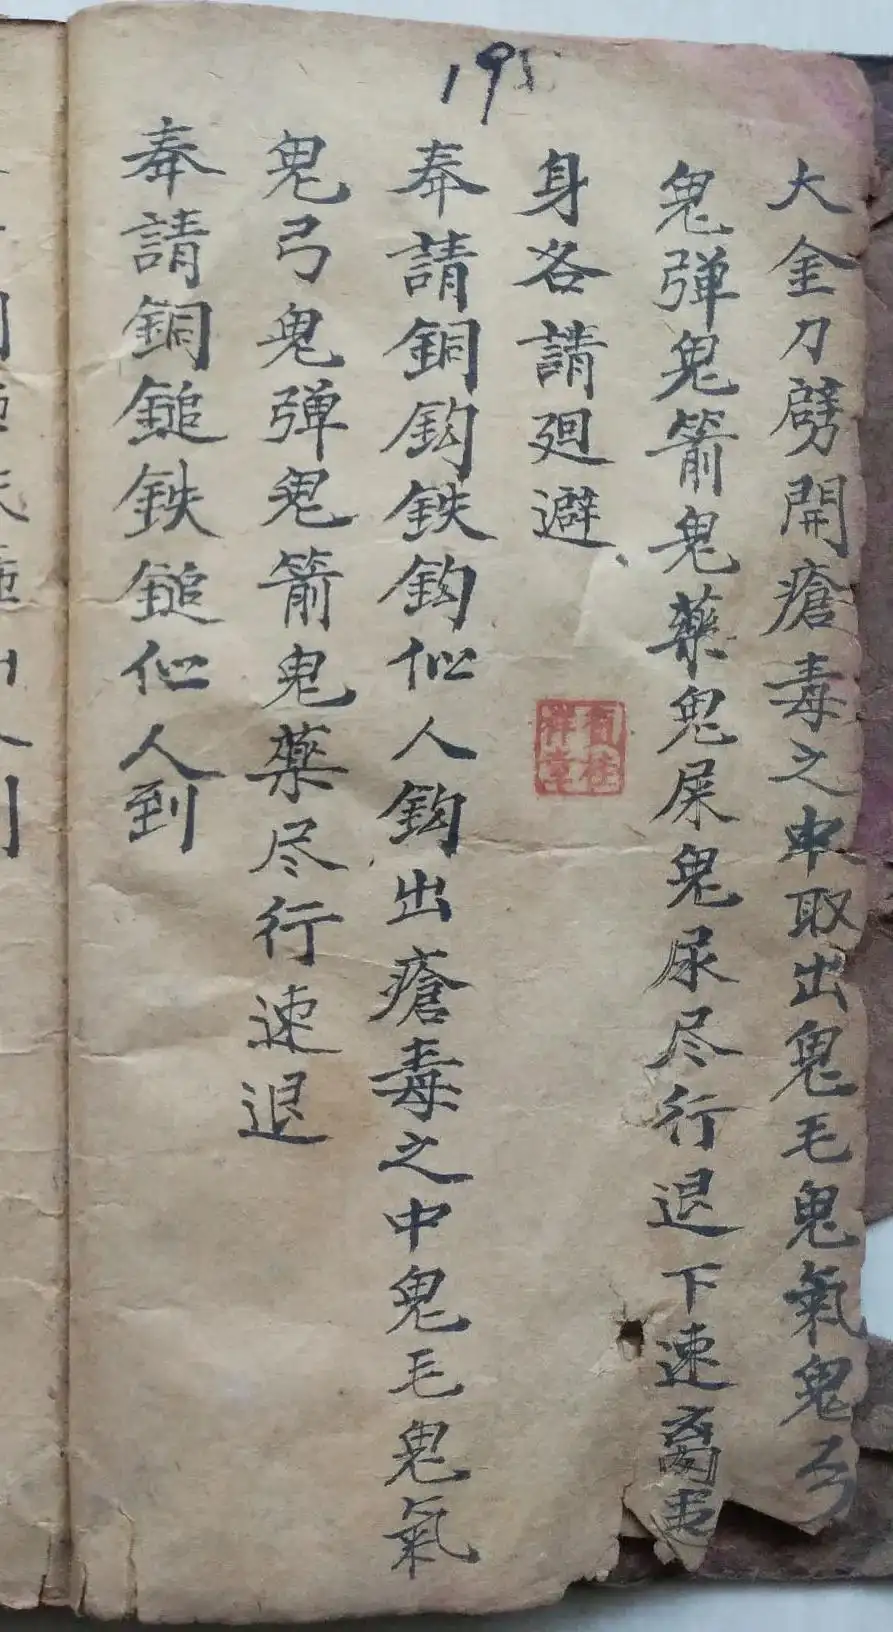 19
大金刀劈開瘡毒之中取出鬼毛鬼氣鬼弓
鬼弾鬼箭鬼藥鬼屎鬼尿尽行退下速离
身各請廻避、
奉請銅鈎鉄鈎似人鈎出瘡毒之中鬼毛鬼氣
鬼弓鬼弾鬼箭鬼藥尽行速退
奉請銅鎚鉄鎚似人到